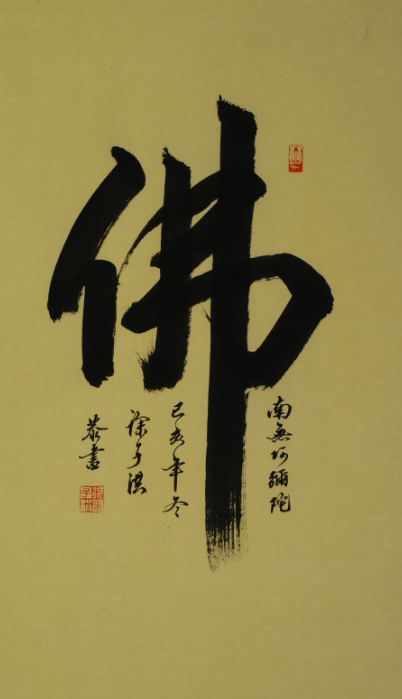 佛
南無阿彌陀
己亥年冬
恭書